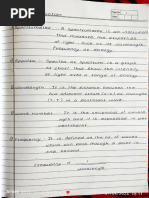 Spectrometer - A Spectrometer is an instrument
that measures the properties
of light such as its wavelength,
frequency or energy.
Spectra - Spectra or Spectrum is a graph
or chart that show the intensity
of light over a range of energy.
Wavelength - It is the distance between the
two adjacent crests (or) or troughs
(-) in a particular wave.
Wave Number - It is the reciprocal of wave length
and it is expressed in per
centimeter.
Frequency - It is defined as the no. of waves
which can pass through a point in
one second.
Frequency = 1
wavelength